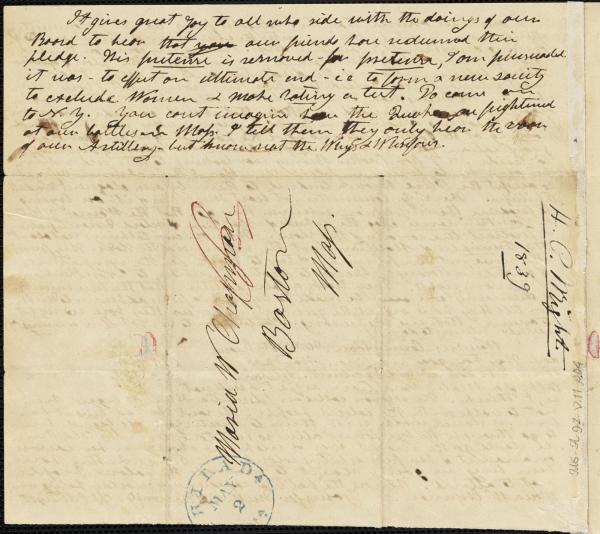 It gives great joy to all who side with the doings of our
Board to hear that our friends have redeemed their
pledge. His pretense is removed - for pretense, I am persuaded
it was - to effect an alternate end - i e to form a new society
to exclude Women & make voting a test. Do come on
to N.Y. You cant imagine how the are frightened
at our battles in Mass. I tell them they only hear the roar
of our Artillery - but know not the Whys & Wherefores.
Maria W Chapman
Boston
Mass.
H. C. Wright.
1839
MAY
2